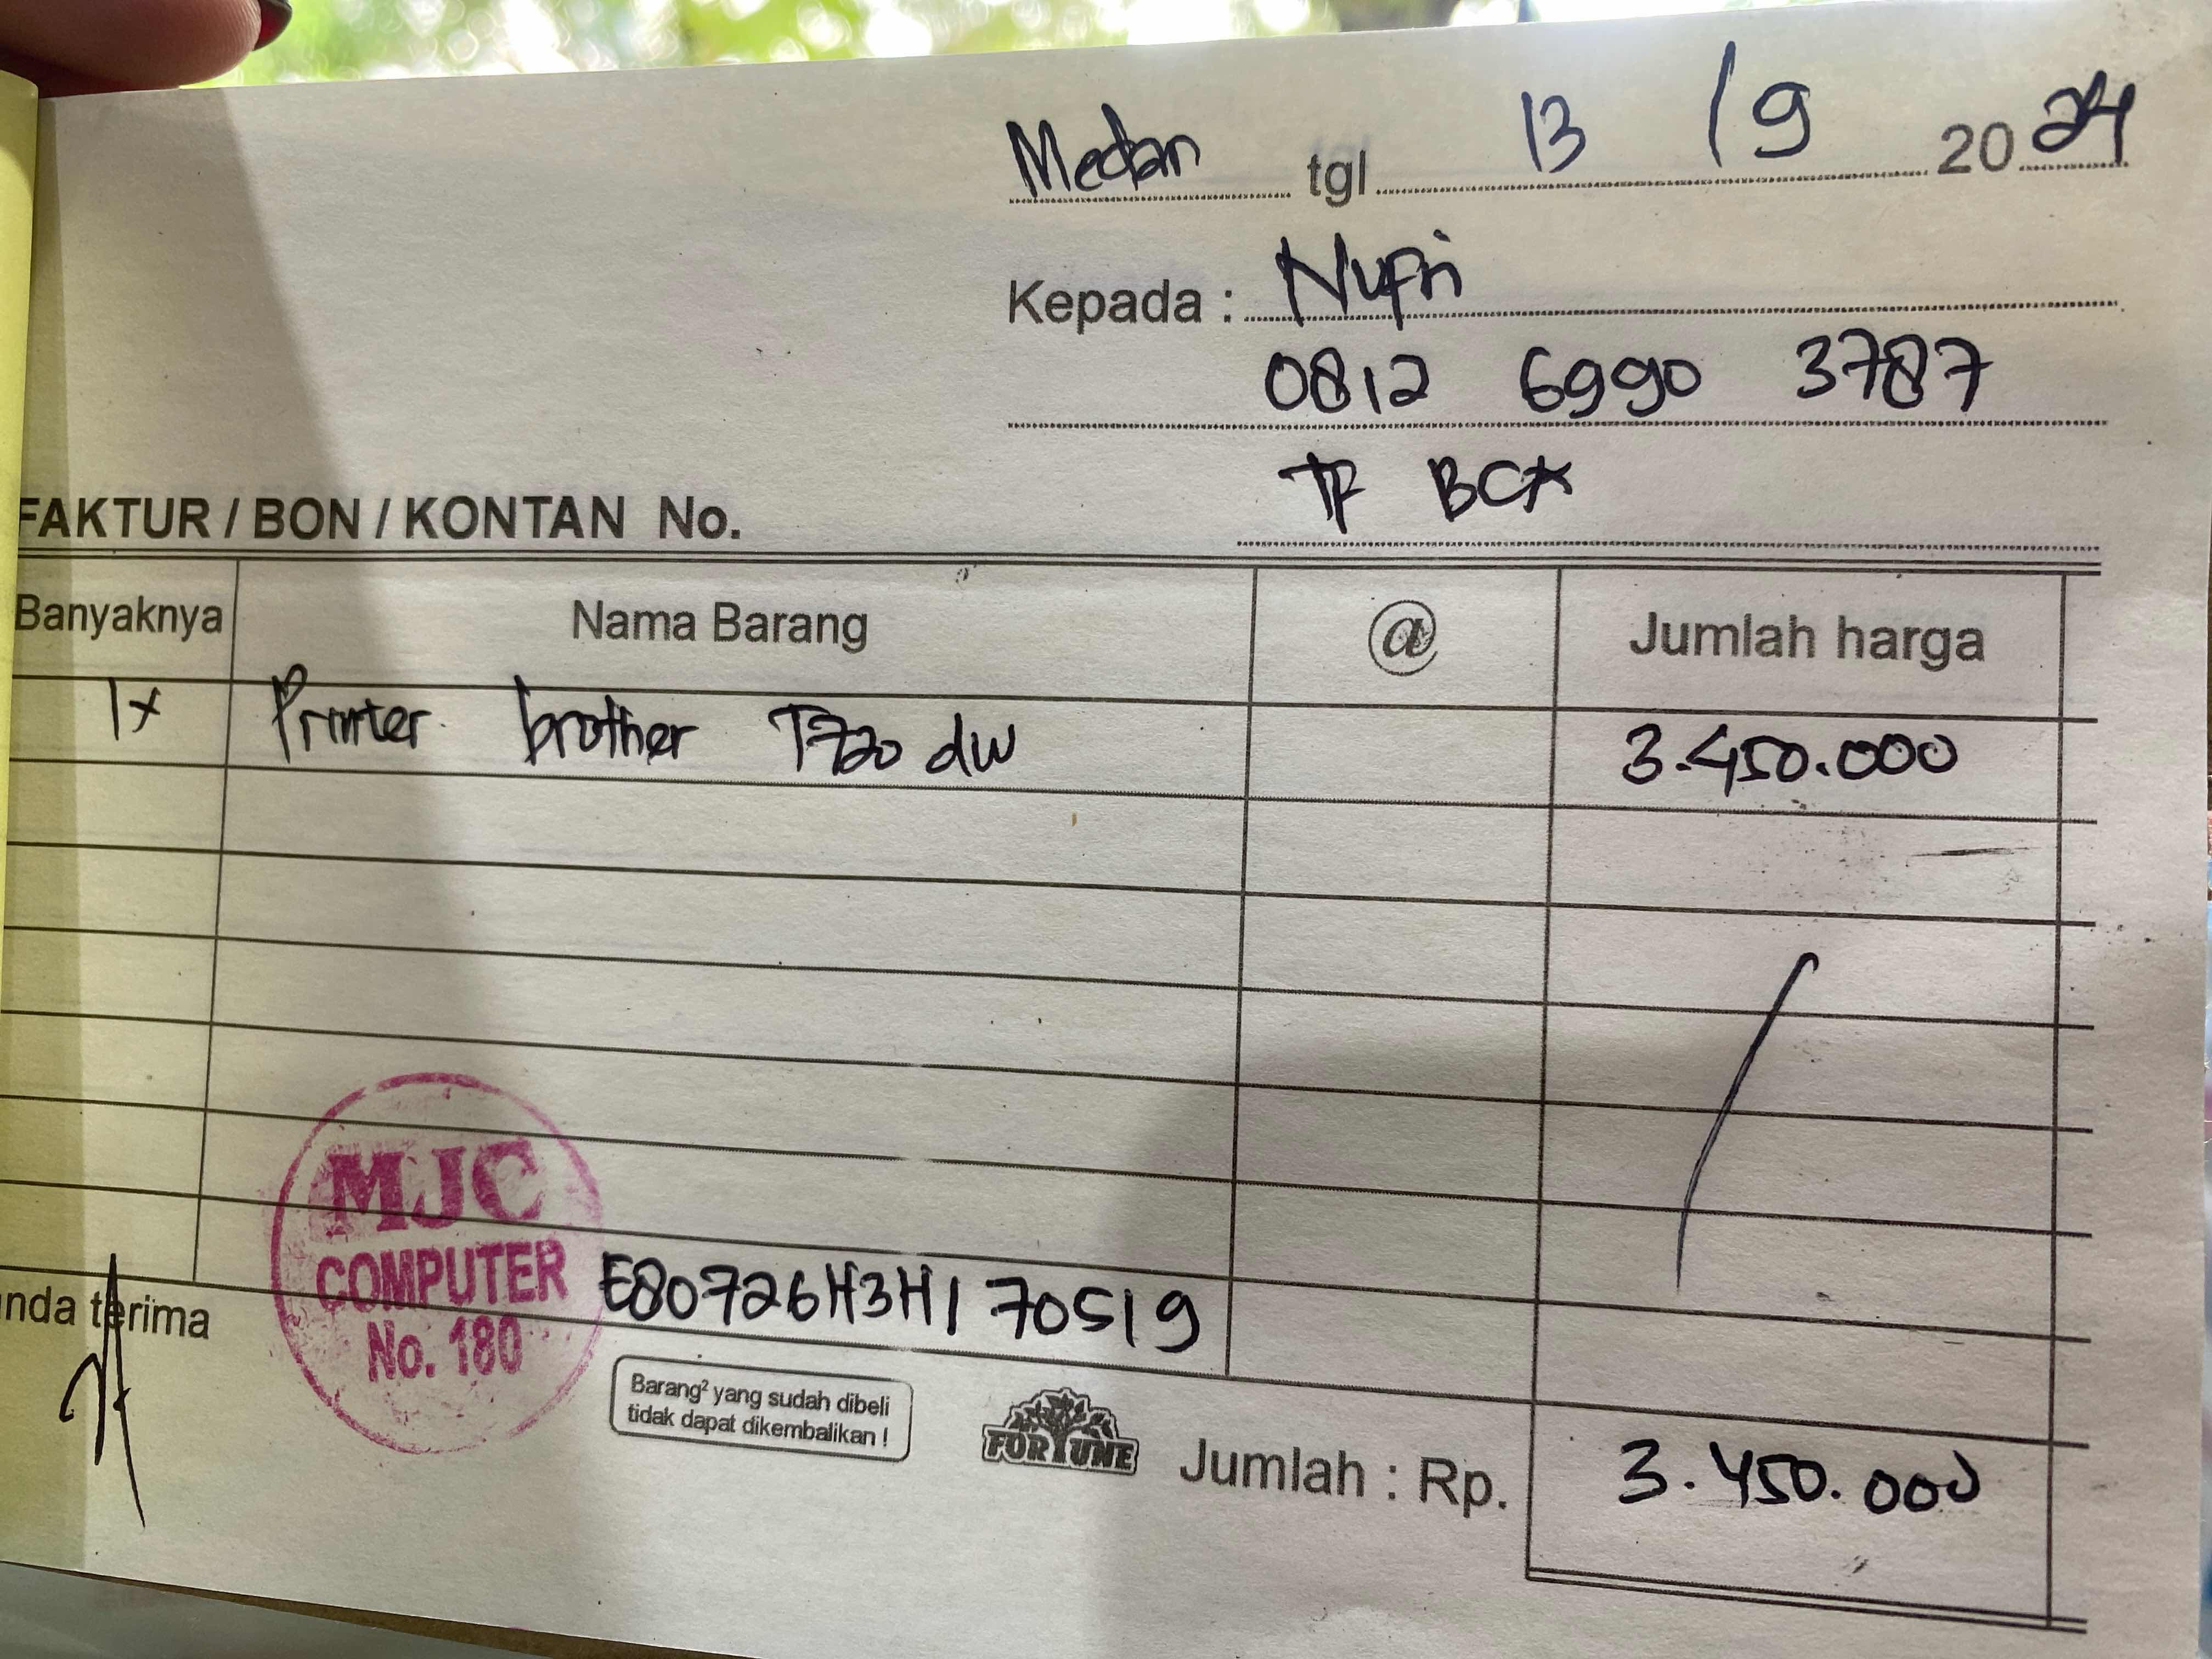 Medan tgl 13 / 9 2024
Kepada : Nufri
0812 6990 3787
TF BCA
FAKTUR / BON / KONTAN No.
Banyaknya Nama Barang @ Jumlah harga
1x Printer brother T720 dw 3.450.000
MJC
COMPUTER
No. 180
E80726H3H170519
nda terima
Barang² yang sudah dibeli
tidak dapat dikembalikan !
FORTUNE
Jumlah : Rp. 3.450.000